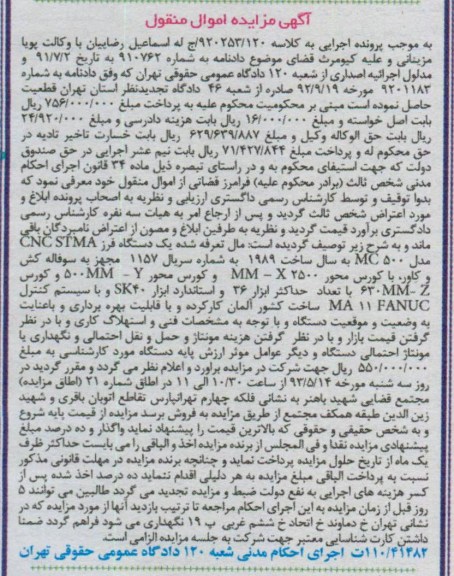 آگهی مزایده اموال منقول
به موجب پرونده اجرایی به کلاسه ۹۲۰۲۵۳/۱۲۰/ج له اسماعیل رضاییان با وکالت پویا
مزینانی و علیه کیومرث قضای موضوع دادنامه به شماره ۹۱۰۷۶۲ به تاریخ ۹۱/۷/۲ و
مدلول اجرائیه اصداری از شعبه ۱۲۰ دادگاه عمومی حقوقی تهران که وفق دادنامه به شماره
۹۲۰۱۱۸۳ مورخه ۹۲/۹/۱۹ صادره از شعبه ۴۶ دادگاه تجدیدنظر استان تهران قطعیت
حاصل نموده است مبنی بر محکومیت محکوم علیه به پرداخت مبلغ ۷۵۶/۰۰۰/۰۰۰ ریال
بابت اصل خواسته و مبلغ ۱۶/۰۰۰/۰۰۰ ریال بابت هزینه دادرسی و مبلغ ۲۴/۹۲۰/۰۰۰
ریال بابت حق الوکاله وکیل و مبلغ ۶۲۹/۶۳۹/۸۸۷ ریال بابت خسارت تاخیر تادیه در
حق محکوم له و پرداخت مبلغ ۷۱/۴۲۷/۸۴۴ ریال بابت نیم عشر اجرایی در حق صندوق
دولت که جهت استیفای محکوم به و در راستای تبصره ذیل ماده ۳۴ قانون اجرای احکام
مدنی شخص ثالث (برادر محکوم علیه) فرامرز قضائی از اموال منقول خود معرفی نمود که
بدوا توقیف و توسط کارشناس رسمی دادگستری ارزیابی و نظریه به اصحاب پرونده ابلاغ و
مورد اعتراض شخص ثالث گردید و پس از ارجاع امر به هیات سه نفره کارشناس رسمی
دادگستری برآورد قیمت گردید و نظریه به طرفین ابلاغ و مصون از اعتراض نامبردگان باقی
ماند و به شرح زیر توصیف گردیده است: مال تعرفه شده یک دستگاه فرز CNC STMA
مدل MC 500 به سال ساخت ۱۹۸۹ به شماره سریال ۱۱۵۷ مجهز به سوفاله کش
و کاور، با کورس محور MM – X ۲۵۰۰ و کورس محور ۵۰۰MM – Y و کورس
۶۳۰MM- Z با تعداد حداکثر ابزار ۳۶ و استاندارد ابزار SK۴۰ و با سیستم کنترل
MA ۱۱ FANUC ساخت کشور آلمان کارکرده و با قابلیت بهره برداری و باعنایت
به وضعیت و موقعیت دستگاه و با توجه به مشخصات فنی و استهلاک کاری و با در نظر
گرفتن قیمت بازار و با در نظر گرفتن هزینه مونتاژ و حمل و نقل احتمالی و نگهداری یا
مونتاژ احتمالی دستگاه و دیگر عوامل موثر ارزش پایه دستگاه مورد کارشناسی به مبلغ
۵۵۰/۰۰۰/۰۰۰ ریال جهت شرکت در مزایده برآورد و اعلام نظر می گردد و مقرر گردید در
روز سه شنبه مورخه ۹۳/۵/۱۴ از ساعت ۱۰/۳۰ الی ۱۱ در اطاق شماره ۲۱ (اطاق مزایده)
مجتمع قضایی شهید باهنر به نشانی فلکه چهارم تهرانپارس تقاطع اتوبان باقری و شهید
زین الدین طبقه همکف مجتمع از طریق مزایده به فروش برسد مزایده از قیمت پایه شروع
و به شخص حقیقی و حقوقی که بالاترین قیمت را پیشنهاد نماید واگذار و ده درصد مبلغ
پیشنهادی مزایده نقدا و فی المجلس از برنده مزایده اخذ و الباقی را می بایست حداکثر ظرف
یک ماه از تاریخ حلول مزایده پرداخت نماید و چنانچه برنده مزایده در مهلت قانونی مذکور
نسبت به پرداخت الباقی مبلغ مزایده به هر دلیلی اقدام ننماید ده درصد اخذ شده پس از
کسر هزینه های اجرایی به نفع دولت ضبط و مزایده تجدید می گردد طالبین می توانند ۵
روز قبل از زمان مزایده به این اجرای احکام مراجعه تا ترتیب بازدید آنها از مورد مزایده که در
نشانی تهران خ دماوند خ اتحاد خ ششم غربی پ ۱۹ نگهداری می شود فراهم گردد ضمنا
داشتن کارت شناسایی معتبر جهت شرکت به جلسه مزایده الزامی است.
۱۱۰/۴۱۳۸۲ت اجرای احکام مدنی شعبه ۱۲۰ دادگاه عمومی حقوقی تهران